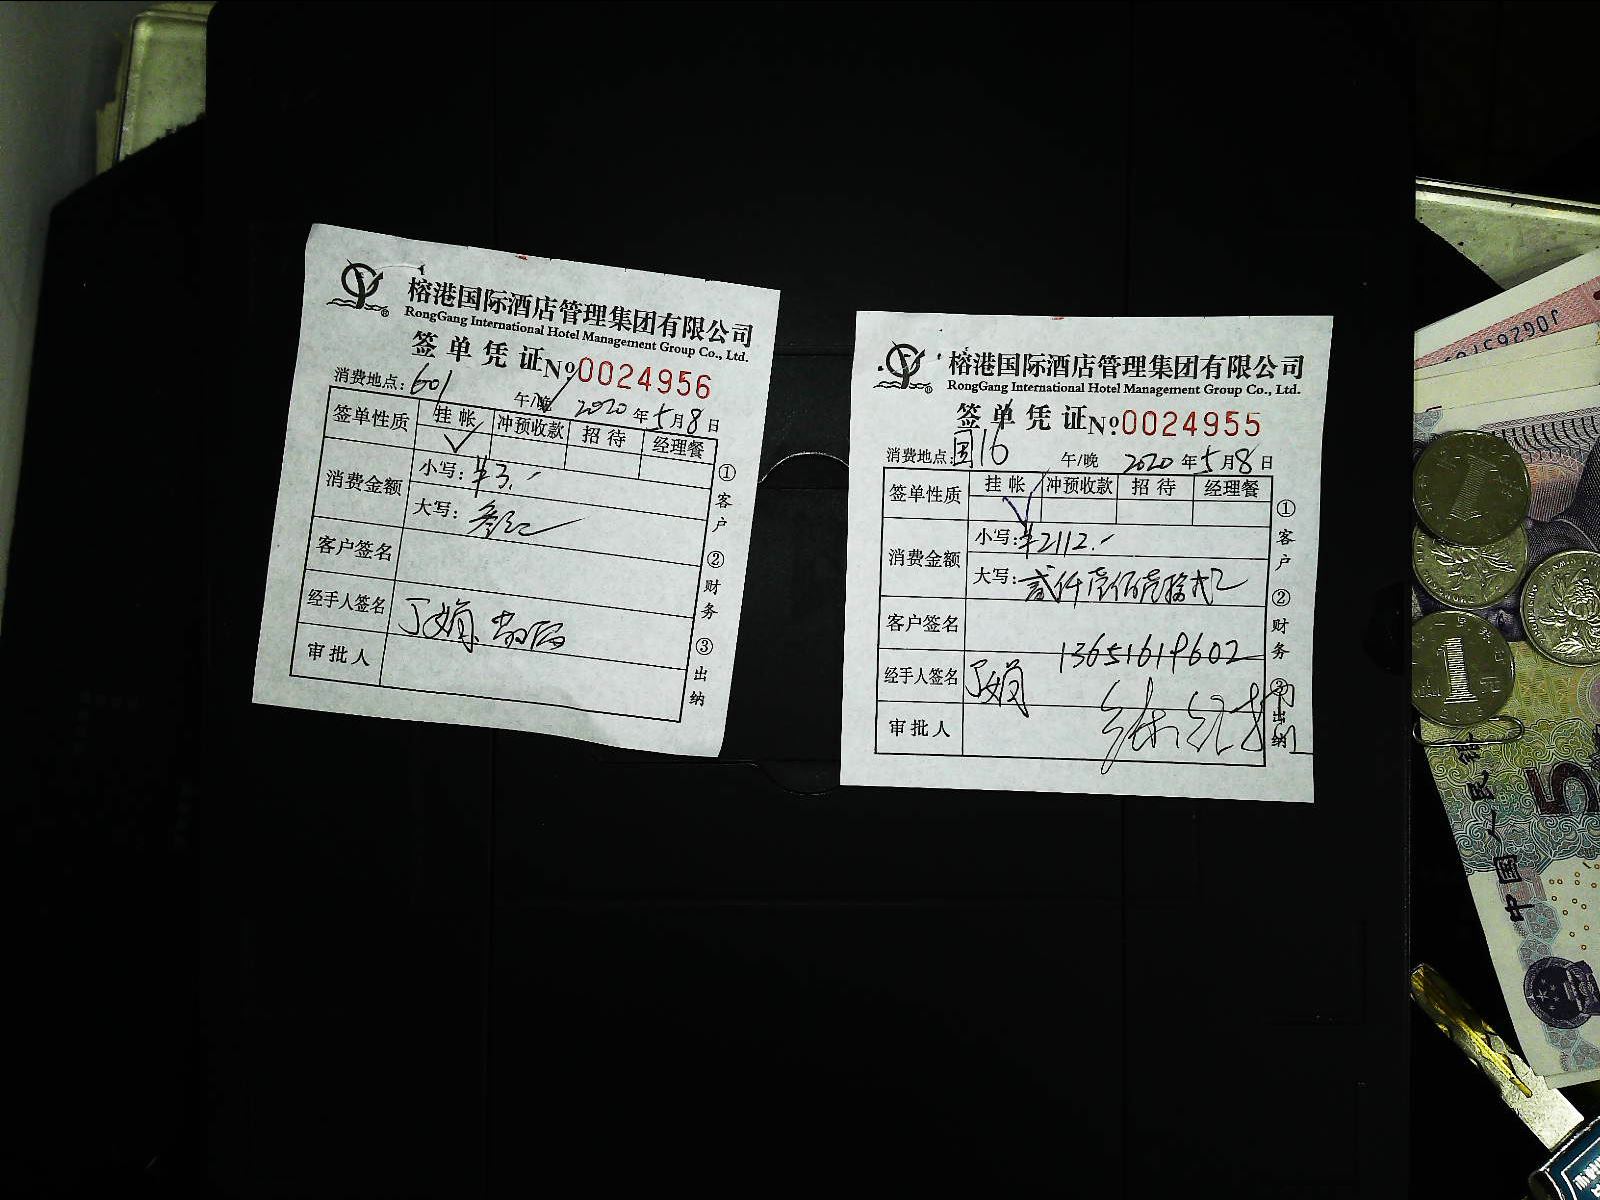 榕港国际酒店管理集团有限公司
RongGang International Hotel Management Group Co., Ltd.
签单凭证 №0024956
消费地点: 601 午/晚 2020年5月8日
签单性质 挂帐 冲预收款 招待 经理餐
消费金额
小写: ¥3.-
大写: 叁元
客户签名
经手人签名 丁娟
审批人
①客户 ②财务 ③出纳
榕港国际酒店管理集团有限公司
RongGang International Hotel Management Group Co., Ltd.
签单凭证 №0024955
消费地点: 国16 午/晚 2020年5月8日
签单性质 挂帐 冲预收款 招待 经理餐
消费金额
小写: ¥2112.-
大写: 贰仟壹佰壹拾贰元
客户签名
13651619602
经手人签名 丁娟
审批人
①客户 ②财务 ③出纳
中国人民银
5
1
1